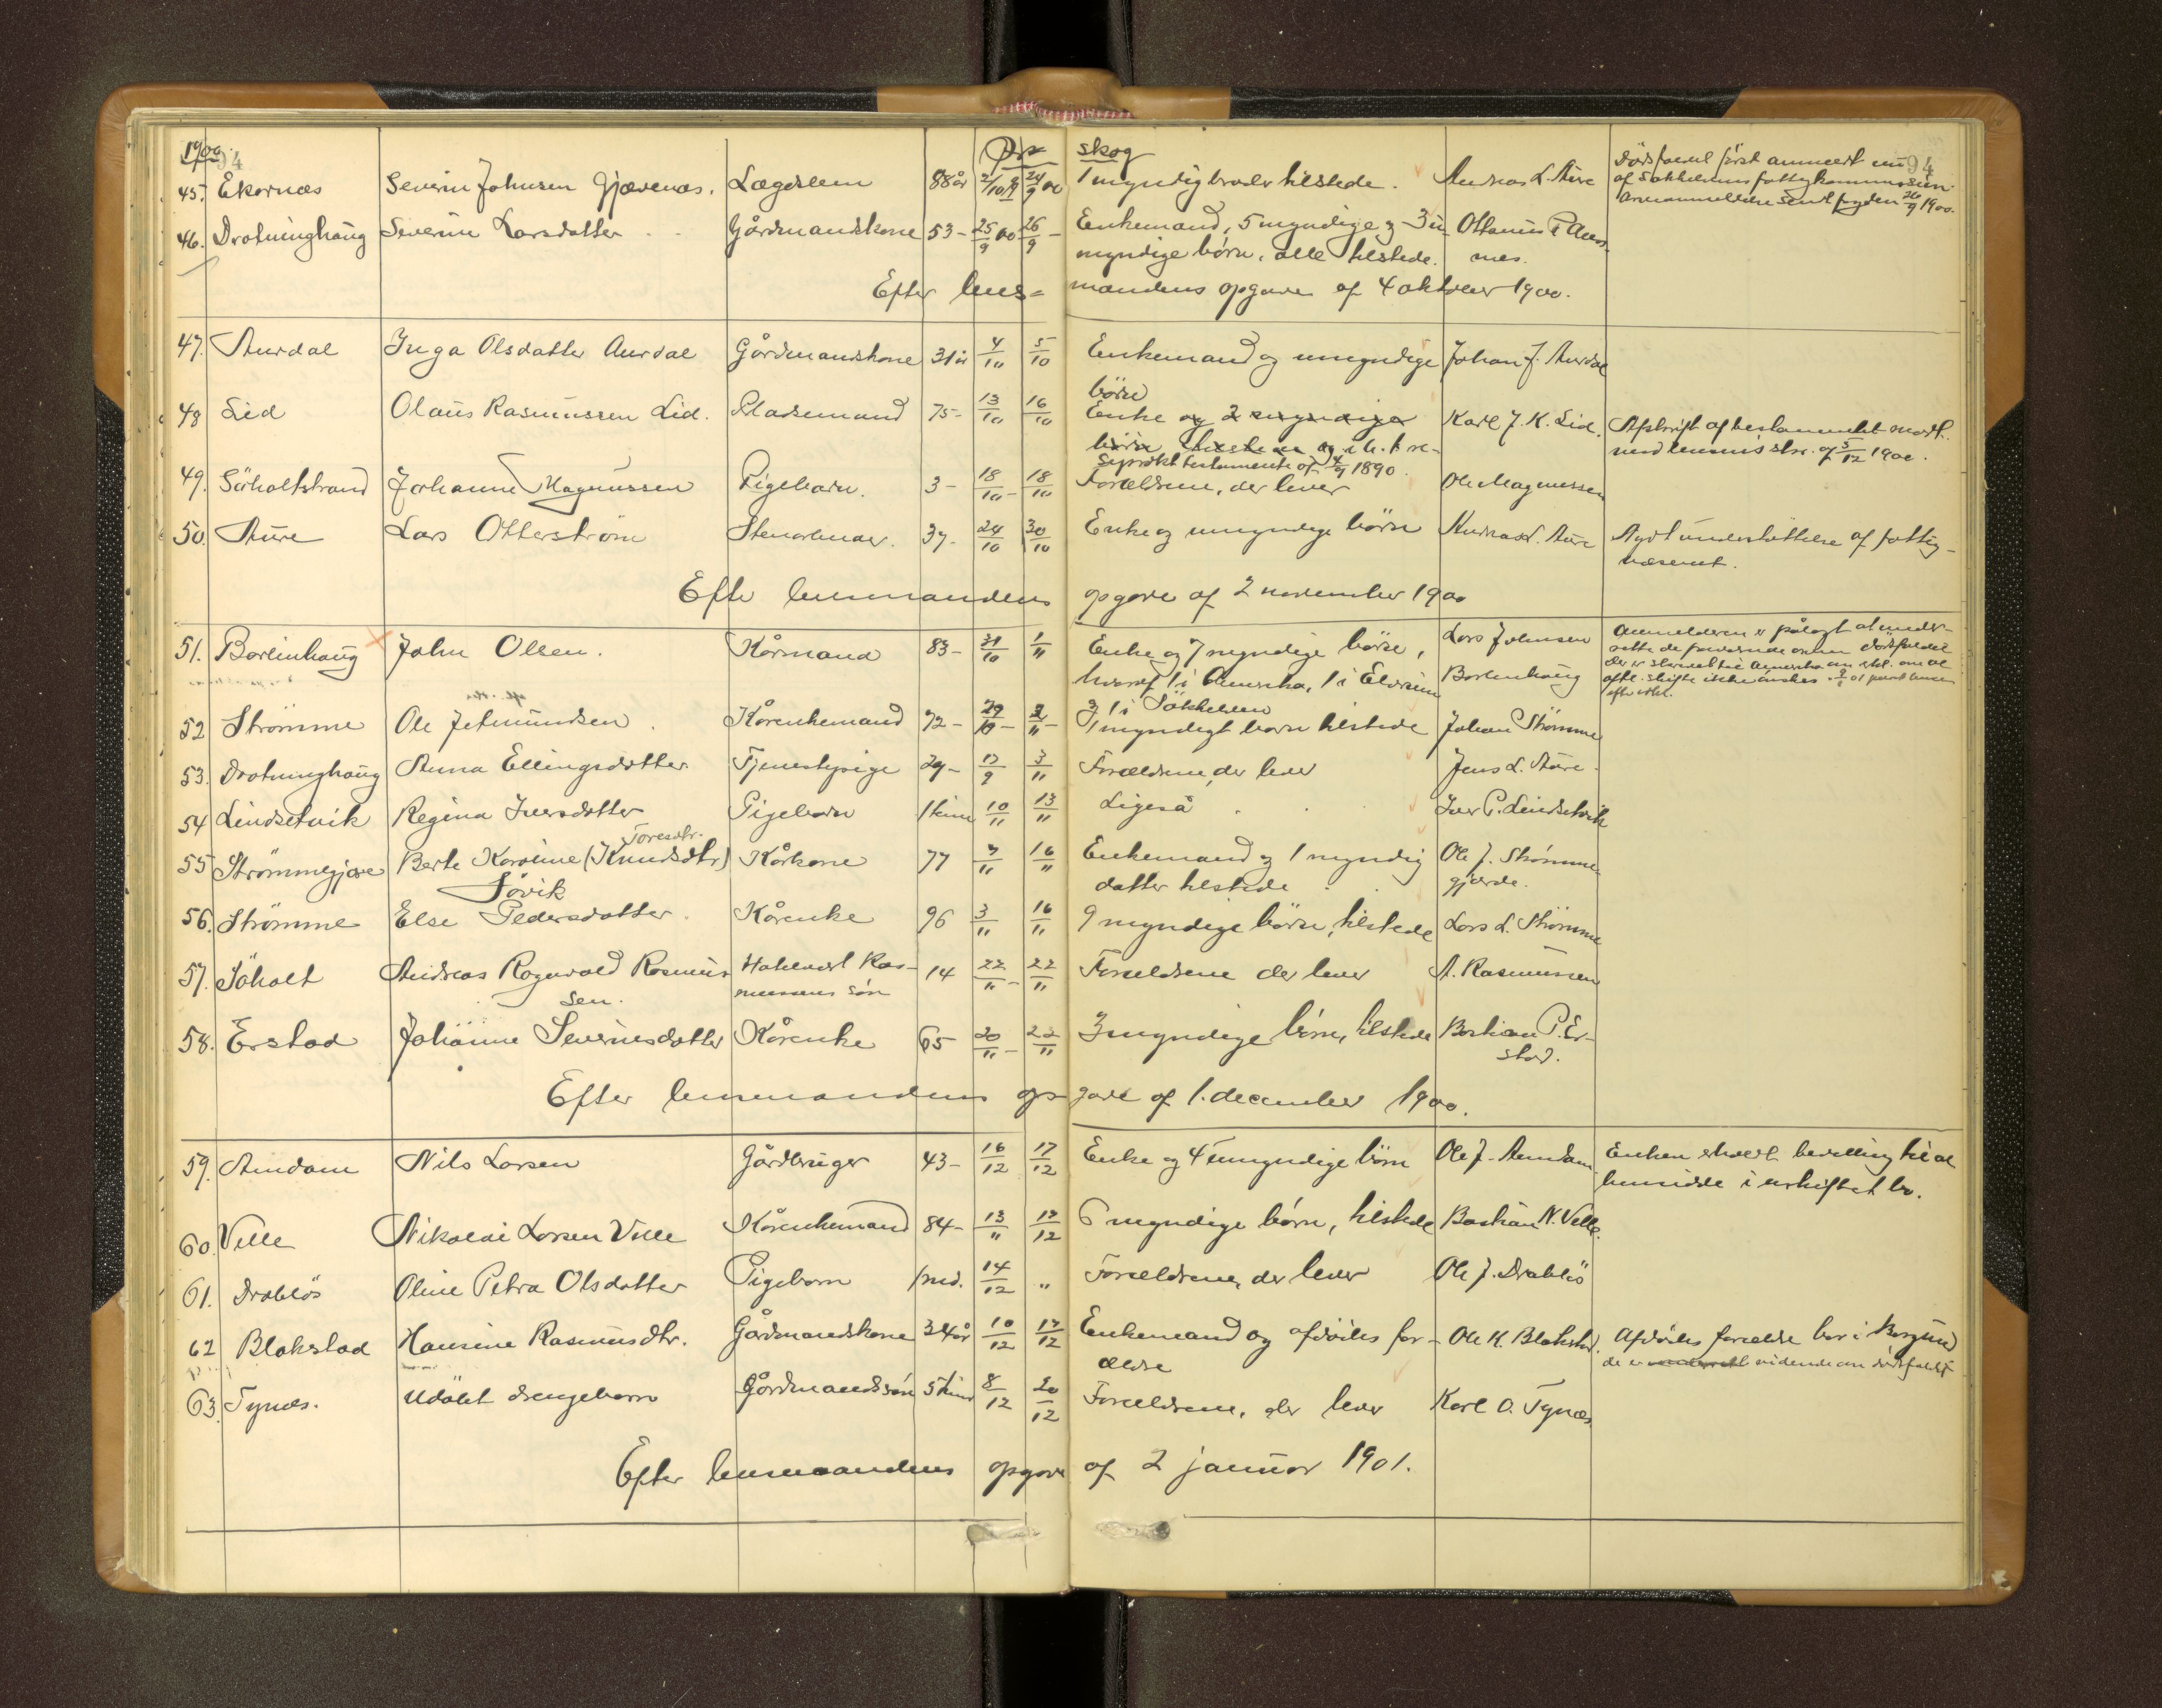 1900 94 Ørskog 94
45. Ekornæs Severin Johnsen Gjævenæs. Lægdslem 88 år 24/9 00 1 myndig broder tilstede. Andreas L. Aure Dødsfaldet først anmeldt nu
af Søkkelvens fattigkommission.
sendt fogden 26/9 1900.
46. Drotninghaug Severine Larsdatter Gårdmandskone 53 - 25/9 00 26/9 - Enkemand, 5 myndige og 3 u-
myndige børn, alle tilstede. Ottanius P. Aurs-
næs.
Efter lens= mandens opgave af 4 oktober 1900.
47. Aurdal Inga Olsdatter Aurdal Gårdmandskone 31 år 4/10 5/10 Enkemand og umyndige
børn Johan J. Aurdal
48 Lid Olaus Rasmussen Lid. Pladsemand 75 - 13/10 16/10 Enke og 2 umyndige
børn tilstede og i h. t. re-
siprokt testamente af 4/9 1890. Karl J. K. Lid. Afskrift af testamentet modt.
med lensm's skr. af 5/12 1900.
49. Sørholtstrand Johanne Magnussen Pigebarn. 3 - 18/10 - 18/10 Forældrene, der lever Ole Magnussen
50. Aure Lars Otterstrøm Stenarbeider. 37 - 24/10 30/10 Enke og umyndige børn Andreas L. Aure Nydt understøttelse af fattig-
væsenet.
Efter lensmandens opgave af 2 november 1900
51. Barlinhaug John Olsen. Kårmand 83 - 31/10 1/11 Enke og 7 myndige børn,
hvoraf 1 i Amerika, 1 i Elverum
og 1 i Søkkelven Lars Johnsen
Barlinhaug Anmelderen er pålagt at under-
rette de fraværende om dødsfaldet
52 Strømme Ole Jetmundsen Kårenkemand 72 - 29/10 - 2/11 - 1 myndigt barn tilstede Johan Strømme
53. Drotninghaug Anna Ellingsdatter Tjenestepige 29 - 17/9 3/11 Forældrene, der lever Jens L. Aure.
54 Lindsetvik Regina Iversdatter Pigebarn 1 time 10/11 13/11 Ligeså Iver P. Lindsetvik
55 Strømmegjære Berte Karoline (Knudsdtr)
Toresdtr.
Søvik Kårkone 77 7/11 16/11 Enkemand og 1 myndig
datter tilstede Ole J. Strømme
gjærde.
56. Strømme Else Pedersdatter Kårenke 96 3/11 16/11 9 myndige børn, tilstede Lars L. Strømme
57. Søholt Andreas Ragnvald Rasmus
sen. Hotelvert Ras-
mussens søn 14 22/11 - 22/11 Forældrene der lever A. Rasmussen
58. Erstad Johanne Severinsdatter Kårenke 65 20/11 - 22/11 3 myndige børn, tilstede Bastian P. Er-
stad.
Efter lensmandens op- gave af 1. december 1900.
59. Amdam Nils Larsen Gårdbruger 43 - 16/12 17/12 Enke og 4 umyndige børn Ole J. Amdam Enken erholdt bevilling til at
hensidde i uskiftet bo.
60. Velle Nikolai Larsen Velle Kårenkemand 84 - 13/" 17/12 6 myndige børn, tilstede Bastian N. Velle.
61. Drabløs Oline Petra Olsdatter Pigebarn 1 md. 14/12 " Forældrene, der lever Ole J. Drabløs
62 Blakstad Hansine Rasmusdtr. Gårdmandskone 34 år 10/12 17/12 Enkemand og afdødes for-
ældre Ole K. Blakstad. Afdødes forældre bor i Borgund
de er underrett vidende om dødsfaldet
63. Tynæs. Udøbt drengebarn Gårdmandssøn 5 timer 8/12 20/12 Forældrene, der lever Karl O. Tynæs
Efter lensmandens opgave af 2 januar 1901.